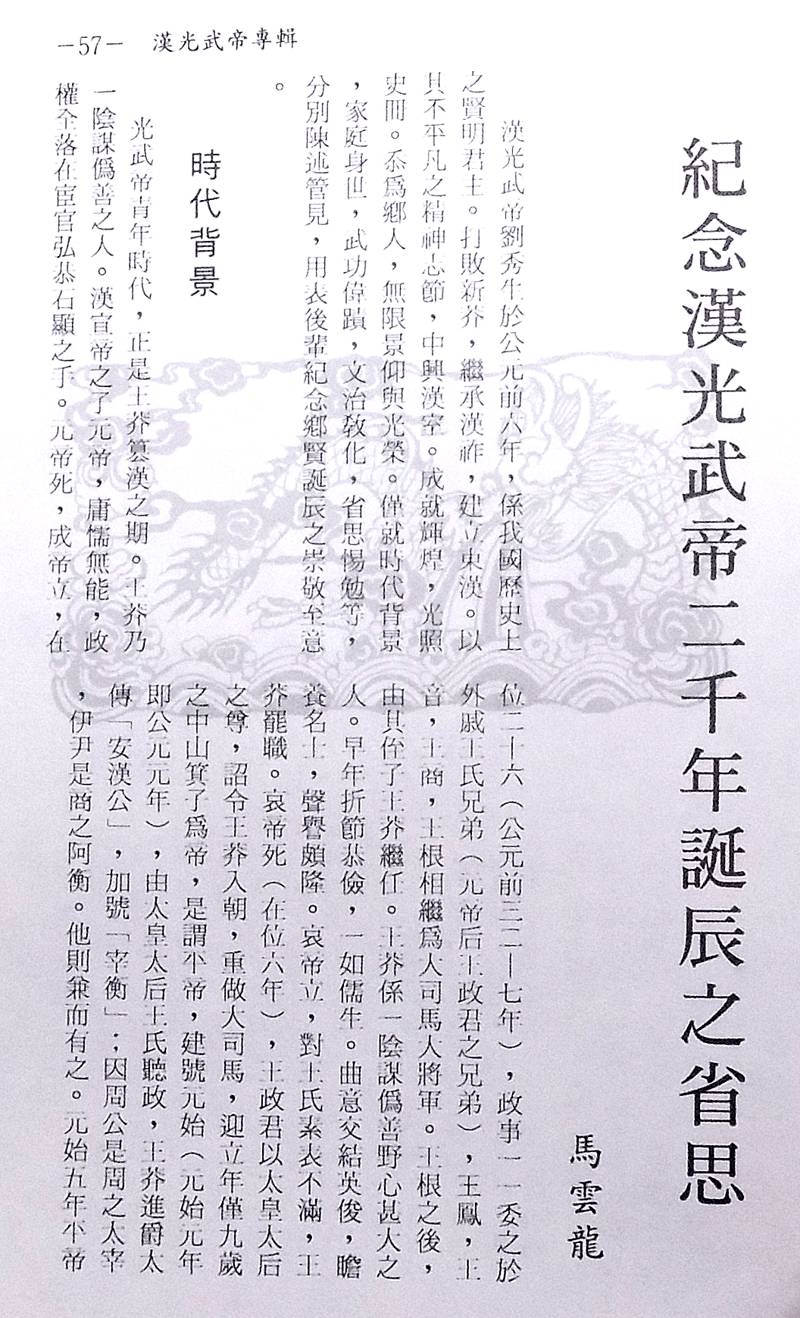 —57— 漢光武帝專輯
紀念漢光武帝二千年誕辰之省思
馬雲龍
漢光武帝劉秀生於公元前六年，係我國歷史上
之賢明君主。打敗新莽，繼承漢祚，建立東漢。以
其不平凡之精神志節，中興漢室。成就輝煌，光照
史冊。忝爲鄉人，無限景仰與光榮。僅就時代背景
，家庭身世，武功偉蹟，文治教化，省思惕勉等，
分別陳述管見，用表後輩紀念鄉賢誕辰之崇敬至意
。
時代背景
光武帝青年時代，正是王莽篡漢之期。王莽乃
一陰謀僞善之人。漢宣帝之子元帝，庸懦無能，政
權全落在宦官弘恭石顯之手。元帝死，成帝立，在
位二十六（公元前三二—七年），政事一一委之於
外戚王氏兄弟（元帝后王政君之兄弟），王鳳，王
音，王商，王根相繼爲大司馬大將軍。王根之後，
由其侄子王莽繼任。王莽係一陰謀僞善野心甚大之
人。早年折節恭儉，一如儒生。曲意交結英俊，瞻
養名士，聲譽頗隆。哀帝立，對王氏素表不滿，王
莽罷職。哀帝死（在位六年），王政君以太皇太后
之尊，詔令王莽入朝，重做大司馬，迎立年僅九歲
之中山箕子爲帝，是謂平帝，建號元始（元始元年
即公元元年），由太皇太后王氏聽政，王莽進爵太
傅「安漢公」，加號「宰衡」；因周公是周之太宰
，伊尹是商之阿衡。他則兼而有之。元始五年平帝